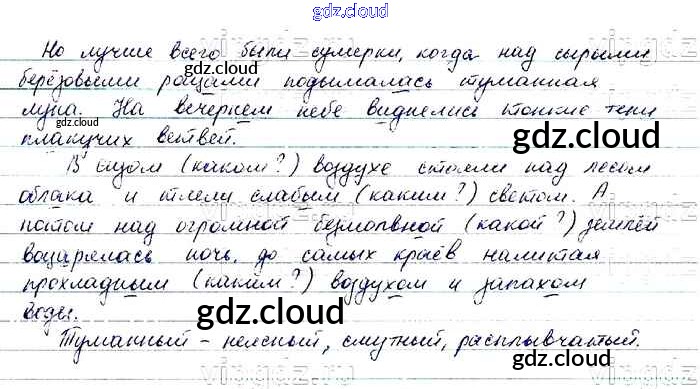 gdz.cloud
Но лучше всего были сумерки, когда над сырыми
gdz.cloud
берёзовыми рощами подымалась туманная
луна. На вечернем небе виднелись тонкие тени
gdz.cloud
плакучих ветвей.
gdz.cloud
В сизом (каком?) воздухе стояли над лесом
облака и тлели слабым (каким?) светом. А
потом над огромной безмолвной (какой?) землёй
воцарялась ночь, до самых краёв налитая
прохладным (каким?) воздухом и запахом
gdz.cloud
gdz.cloud
воды.
Туманный - неясный, смутный, расплывчатый.
gdz.cloud